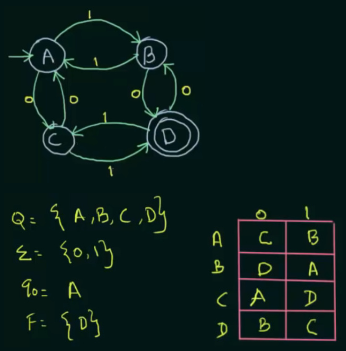 1
A B
1
0 0 0 0
1
C D
1
Q = { A, B, C, D }
Σ = { 0, 1 }
q0 = A
F = { D }
0 1
A C B
B D A
C A D
D B C